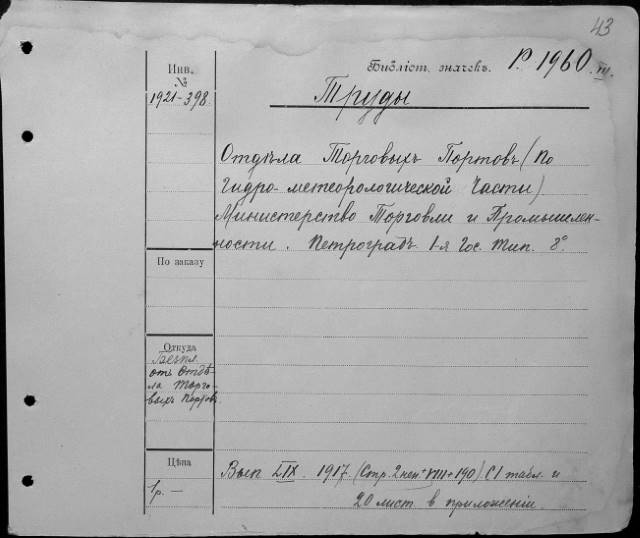 43
Инв.
№
1921-398.
Библіот. значекъ. Р. 1960 III.
Труды
Отдѣла Торговыхъ Портовъ (по
Гидро-метеорологической Части)
Министерство Торговли и Промышлен-
ности. Петроградъ 1-я Гос. Тип. 8°.
По заказу
Откуда
Безпл.
отъ Отдѣ-
ла Торго-
выхъ Портов.
Цѣна
1р. —
Вып LIX. 1917. (Стр. 2 нен + VIII + 190) С 1 табл. и
20 лист. в приложеніи.